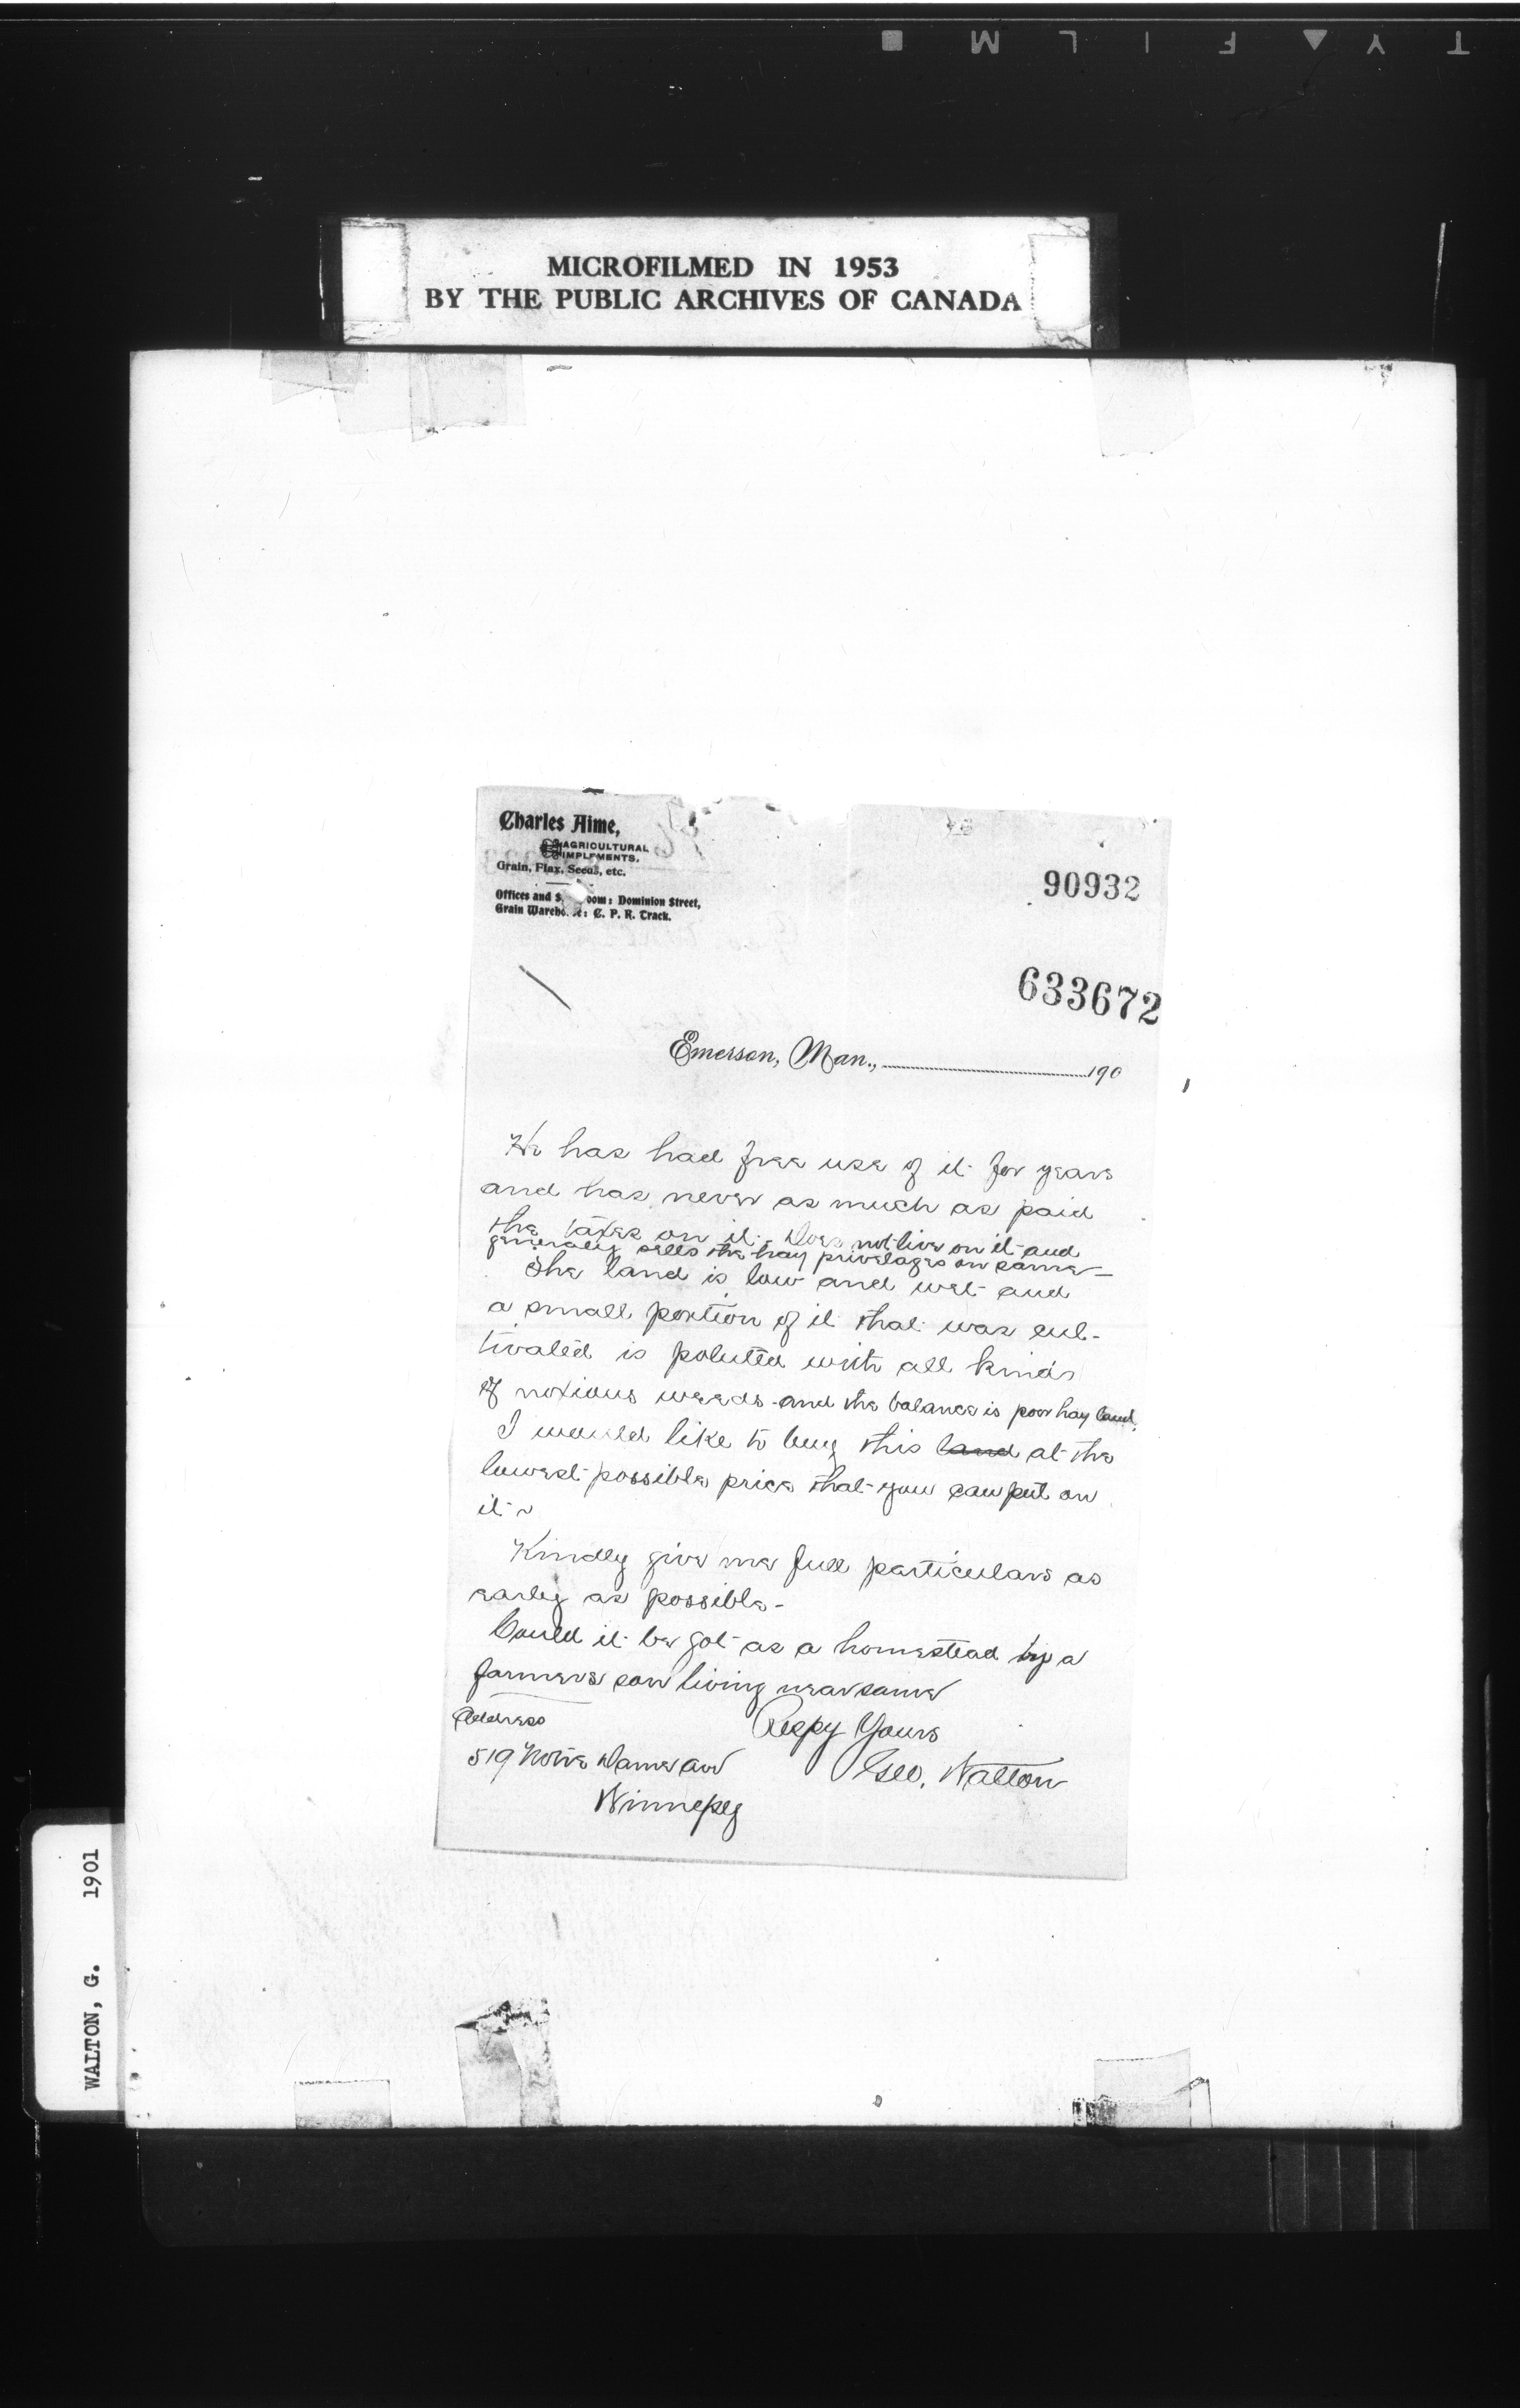 T Y F I L M
MICROFILMED IN 1953
BY THE PUBLIC ARCHIVES OF CANADA
Charles Aime,
AGRICULTURAL
IMPLEMENTS,
Grain, Flax, Seeds, etc.
Offices and S oom: Dominion Street,
Grain Wareho e: C. P. R. Track.
90932
633672
Emerson, Man., 190
He has had free use of it for years
and has never as much as paid
the taxes on it. Does not live on it and
generaley sells the hay privelages on same
The land is low and wet and
a small portion of it that was cul-
tivated is poluted with all kinds
of noxious weeds and the balance is poor hay land.
I would like to buy this land at the
lowest possible price that you can put on
it
Kindly give me full particulars as
early as possible-
Could it be got as a homestead by a
farmers son living near same
Address
Respy Yours
519 Notre Dame ave
Geo. Walton
Winnepeg
WALTON, G. 1901